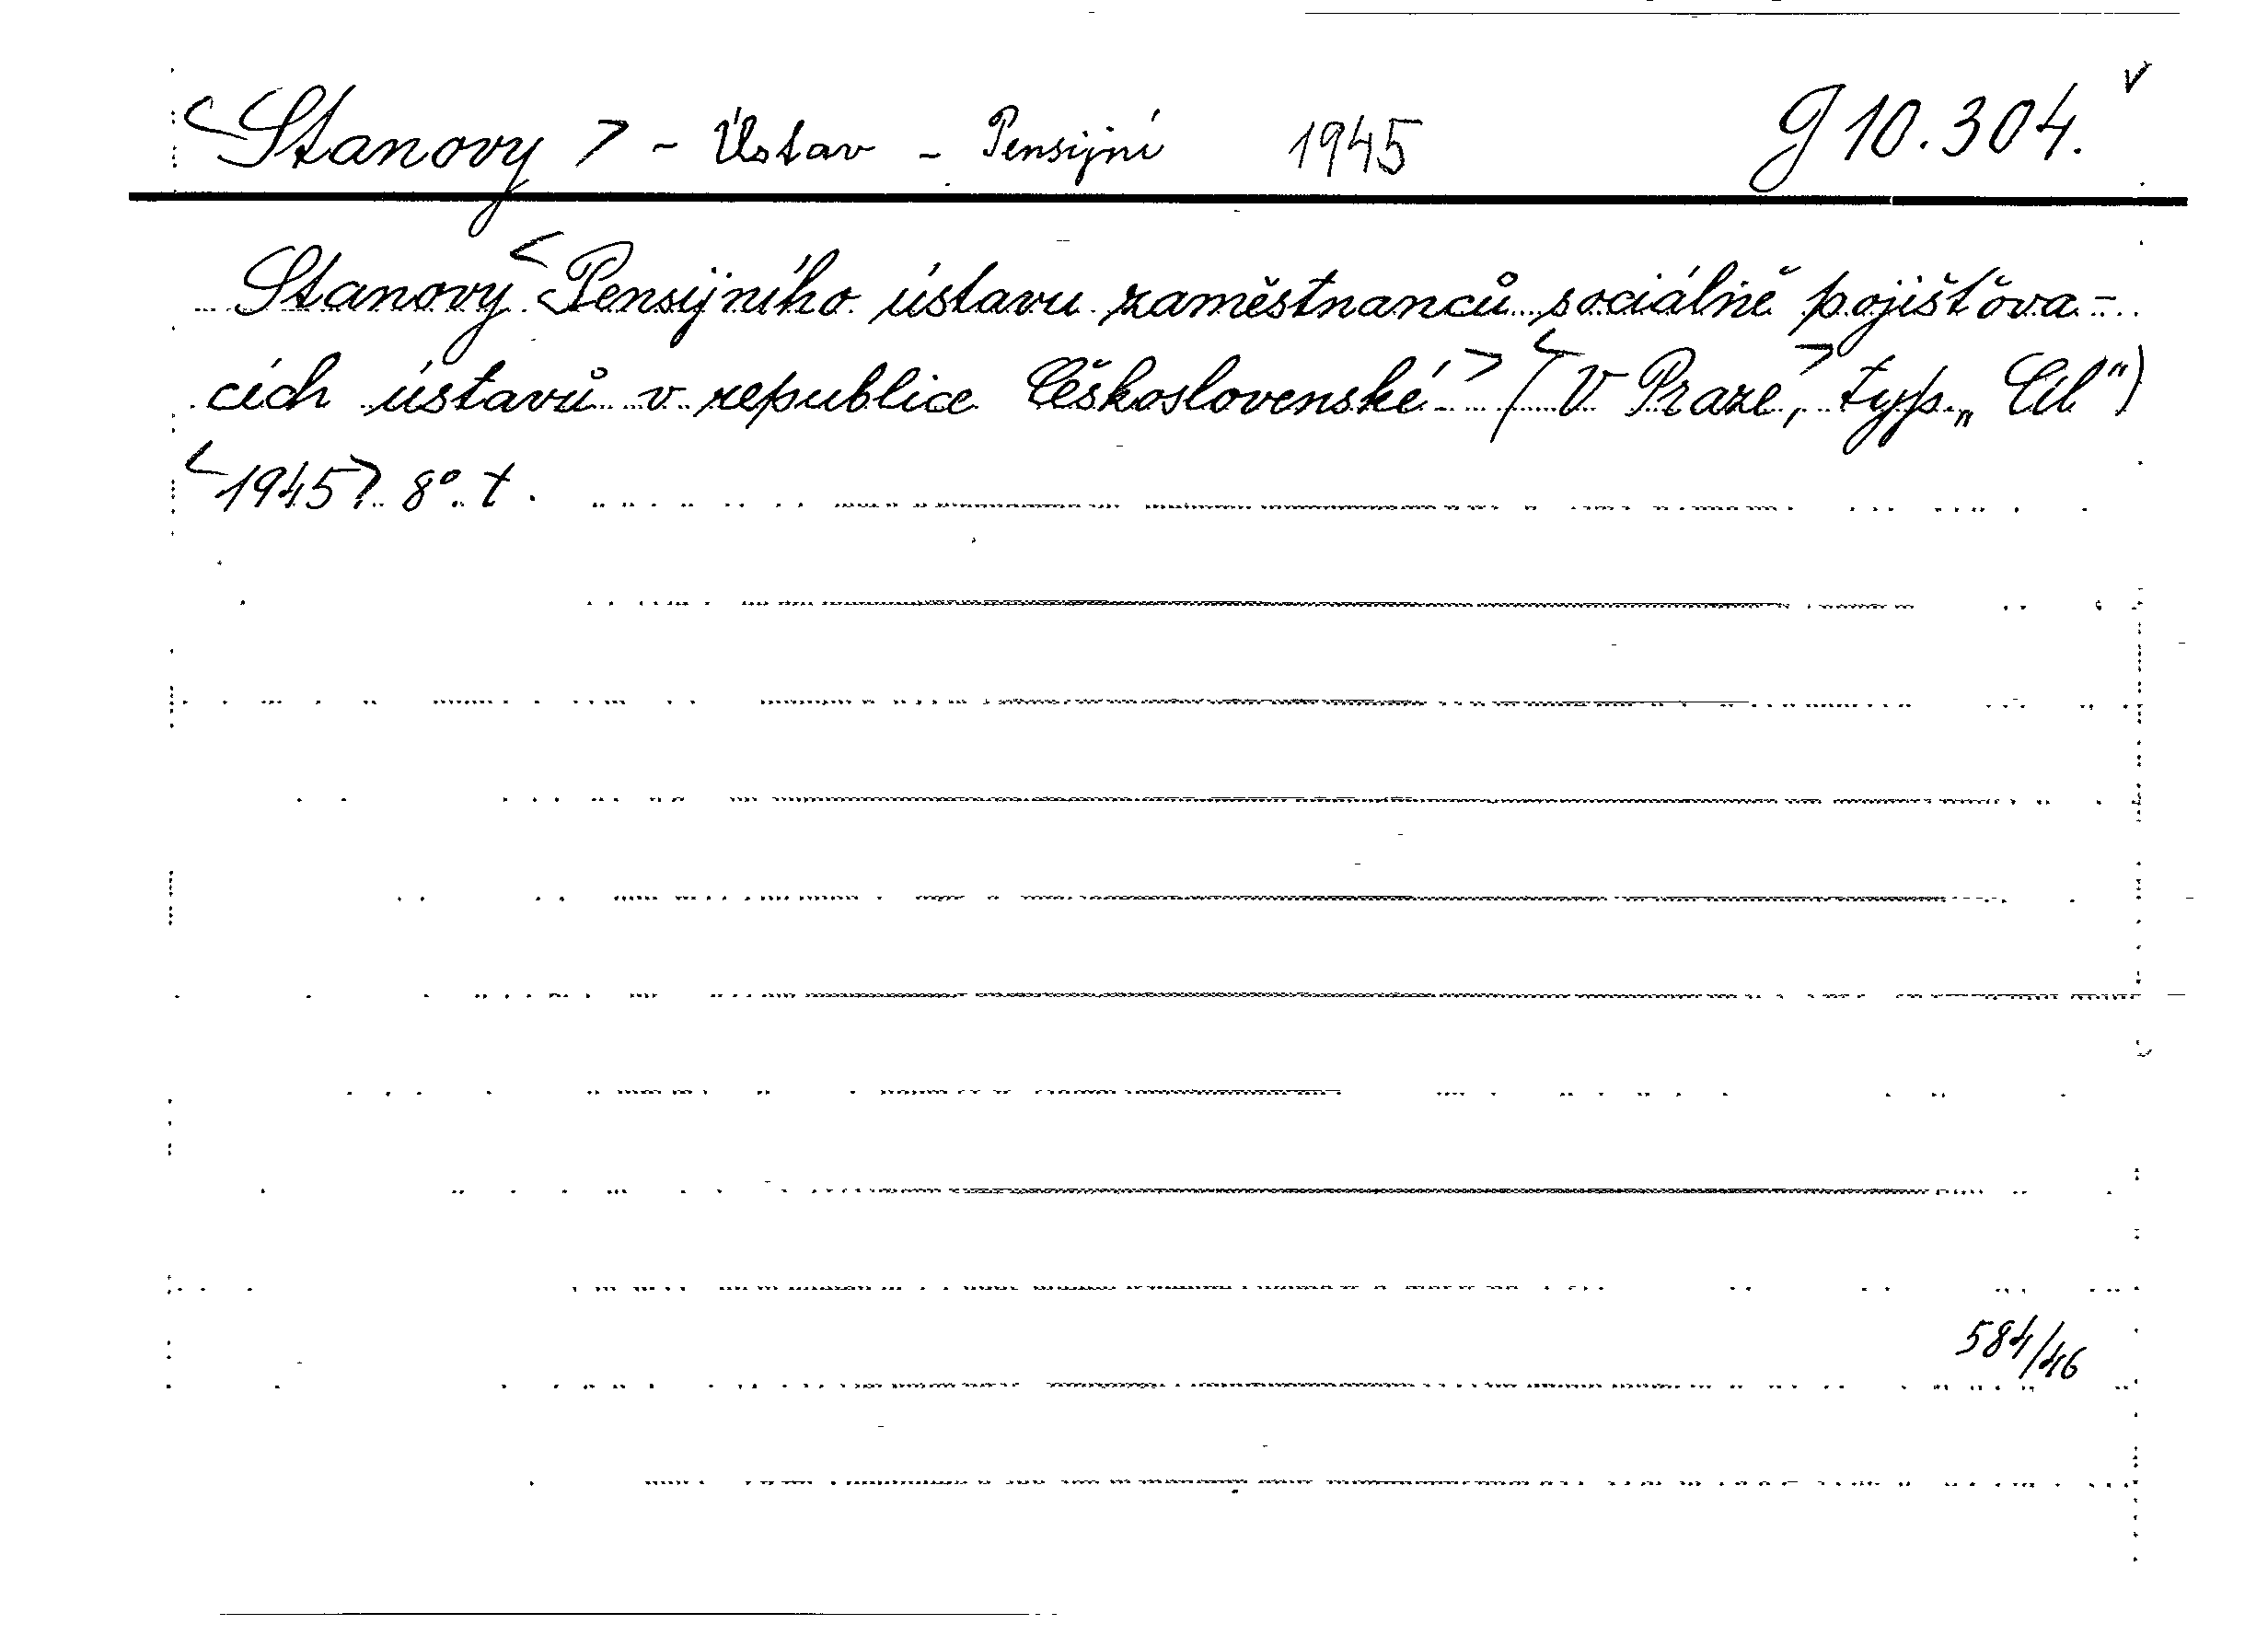 <Stanovy> - Ústav - Pensijní 1945 G 10.304. v
Stanovy <Pensijního ústavu zaměstnanců sociálně pojišťova-
cích ústavů v republice Československé> (<V Praze,> typ. „Cíl“)
<1945> 8°. t.
584/46